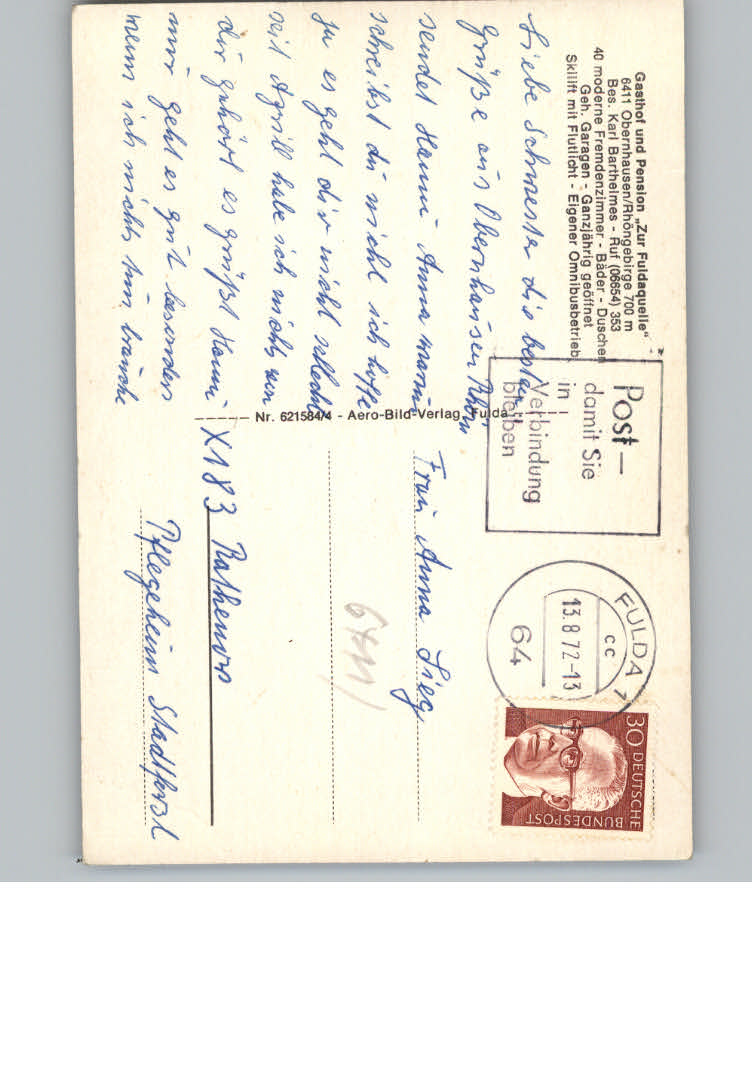 Gasthof und Pension „Zur Fuldaquelle“
6411 Obernhausen/Rhöngebirge 700 m
Bes. Karl Barthelmes - Ruf (06654) 353
40 moderne Fremdenzimmer - Bäder - Duschen
Geh. Garagen - Ganzjährig geöffnet
Skilift mit Flutlicht - Eigener Omnibusbetrieb
Liebe Schwester die besten
Grüße aus Obernhausen Rhön
sendet Hanni Anna warum
schreibst du nicht ich hoffe
ja es geht dir nicht schlecht
seit Aprill habe ich nichts von
dir gehört es grüßt Hanni
mir geht es gut besonders
wenn ich nichts tun brauche
Nr. 621584/4 - Aero-Bild-Verlag, Fulda
Post—
damit Sie
in
Verbindung
bleiben
FULDA 1
cc
13.8.72-13
64
30 DEUTSCHE
BUNDESPOST
Frau Anna Sieg
X183 Rathenow
Pflegeheim Stadtforst